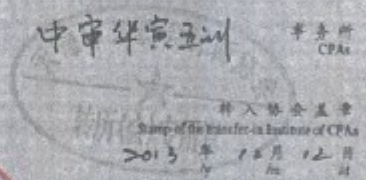 中审华寅五洲 事务所
CPAs
转入协会盖章
Stamp of the transfer-in Institute of CPAs
2013 年 12 月 12 日
/y /m /d